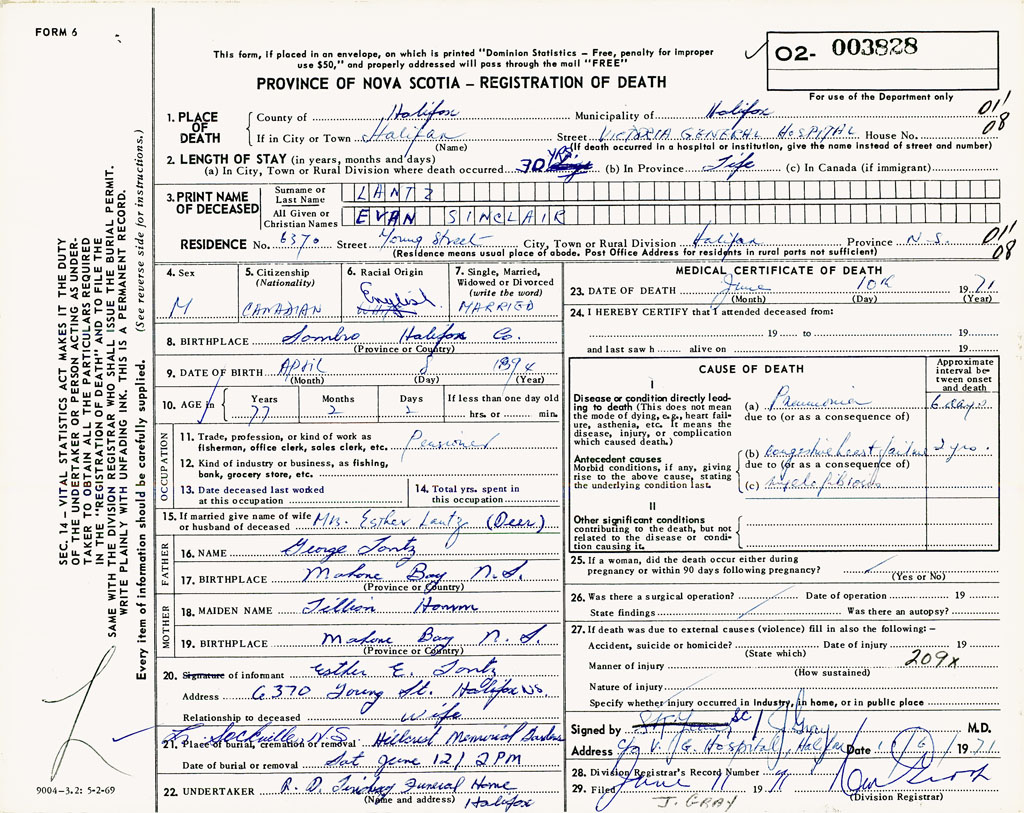 FORM 6
This form, if placed in an envelope, on which is printed "Dominion Statistics – Free, penalty for improper
use $50," and properly addressed will pass through the mail "FREE"
PROVINCE OF NOVA SCOTIA – REGISTRATION OF DEATH
O2- 003828
For use of the Department only
1. PLACE OF DEATH
County of Halifax Municipality of Halifax
01'
08
If in City or Town Halifax Street VICTORIA GENERAL HOSPITAL House No.
(Name) (If death occurred in a hospital or institution, give the name instead of street and number)
2. LENGTH OF STAY (in years, months and days)
(a) In City, Town or Rural Division where death occurred 30 YRS. (b) In Province Life (c) In Canada (if immigrant)
3. PRINT NAME OF DECEASED
Surname or Last Name LANTZ
All Given or Christian Names EVAN SINCLAIR
RESIDENCE No. 6370 Street Young Street City, Town or Rural Division Halifax Province N-S.
01'
08
(Residence means usual place of abode. Post Office Address for residents in rural parts not sufficient)
4. Sex
M
5. Citizenship (Nationality)
CANADIAN
6. Racial Origin
English
7. Single, Married, Widowed or Divorced (write the word)
MARRIED
8. BIRTHPLACE Sambro Halifax Co.
(Province or Country)
9. DATE OF BIRTH APRIL 8 1894
(Month) (Day) (Year)
10. AGE in Years Months Days If less than one day old
77 2 2 hrs. or min.
OCCUPATION
11. Trade, profession, or kind of work as
fisherman, office clerk, sales clerk, etc. Pensioner
12. Kind of industry or business, as fishing,
bank, grocery store, etc.
13. Date deceased last worked
at this occupation
14. Total yrs. spent in
this occupation
15. If married give name of wife
or husband of deceased Mrs. Esther Lantz (Deer)
FATHER
16. NAME George Lantz
17. BIRTHPLACE Mahone Bay N.S.
(Province or Country)
MOTHER
18. MAIDEN NAME Lillian
19. BIRTHPLACE Mahone Bay N.S.
(Province or Country)
20. Signature of informant Esther E. Lantz
Address 6370 Young St. Halifax NS.
Relationship to deceased wife
L. Sackville, N.S.
21. Place of burial, cremation or removal Hillcrest Memorial Gardens
Date of burial or removal Sat June 12/ 2PM
22. UNDERTAKER R. D. Lindsay Funeral Home
(Name and address) Halifax
MEDICAL CERTIFICATE OF DEATH
23. DATE OF DEATH June 10th 1971
(Month) (Day) (Year)
24. I HEREBY CERTIFY that I attended deceased from:
19 to 19
and last saw h alive on 19
CAUSE OF DEATH
Approximate interval between onset and death
I
Disease or condition directly leading to death (This does not mean the mode of dying, e.g., heart failure, asthenia, etc. It means the disease, injury, or complication which caused death.)
(a) Pneumonia 6 days
due to (or as a consequence of)
Antecedent causes
Morbid conditions, if any, giving rise to the above cause, stating the underlying condition last.
(b) congestive heart failure 2 yrs.
due to (or as a consequence of)
(c) myelofibrosis
II
Other significant conditions
contributing to the death, but not related to the disease or condition causing it.
25. If a woman, did the death occur either during
pregnancy or within 90 days following pregnancy?
(Yes or No)
26. Was there a surgical operation? Date of operation 19
State findings Was there an autopsy?
27. If death was due to external causes (violence) fill in also the following: –
Accident, suicide or homicide? Date of injury 19
(State which) 209x
Manner of injury
(How sustained)
Nature of injury
Specify whether injury occurred in Industry, in home, or in public place
Signed by J Gray M.D.
Address c/o V.G. Hospital, Halifax Date 1971
28. Division Registrar's Record Number
29. Filed June 11 1971
(Division Registrar)
J. GRAY
SEC. 14 – VITAL STATISTICS ACT MAKES IT THE DUTY
OF THE UNDERTAKER OR PERSON ACTING AS UNDER-
TAKER TO OBTAIN ALL THE PARTICULARS REQUIRED
IN THE "REGISTRATION OF DEATH" AND TO FILE THE
SAME WITH THE DIVISION REGISTRAR WHO SHALL ISSUE THE BURIAL PERMIT.
WRITE PLAINLY WITH UNFADING INK. THIS IS A PERMANENT RECORD.
Every item of information should be carefully supplied. (See reverse side for instructions.)
9004-3.2: 5-2-69